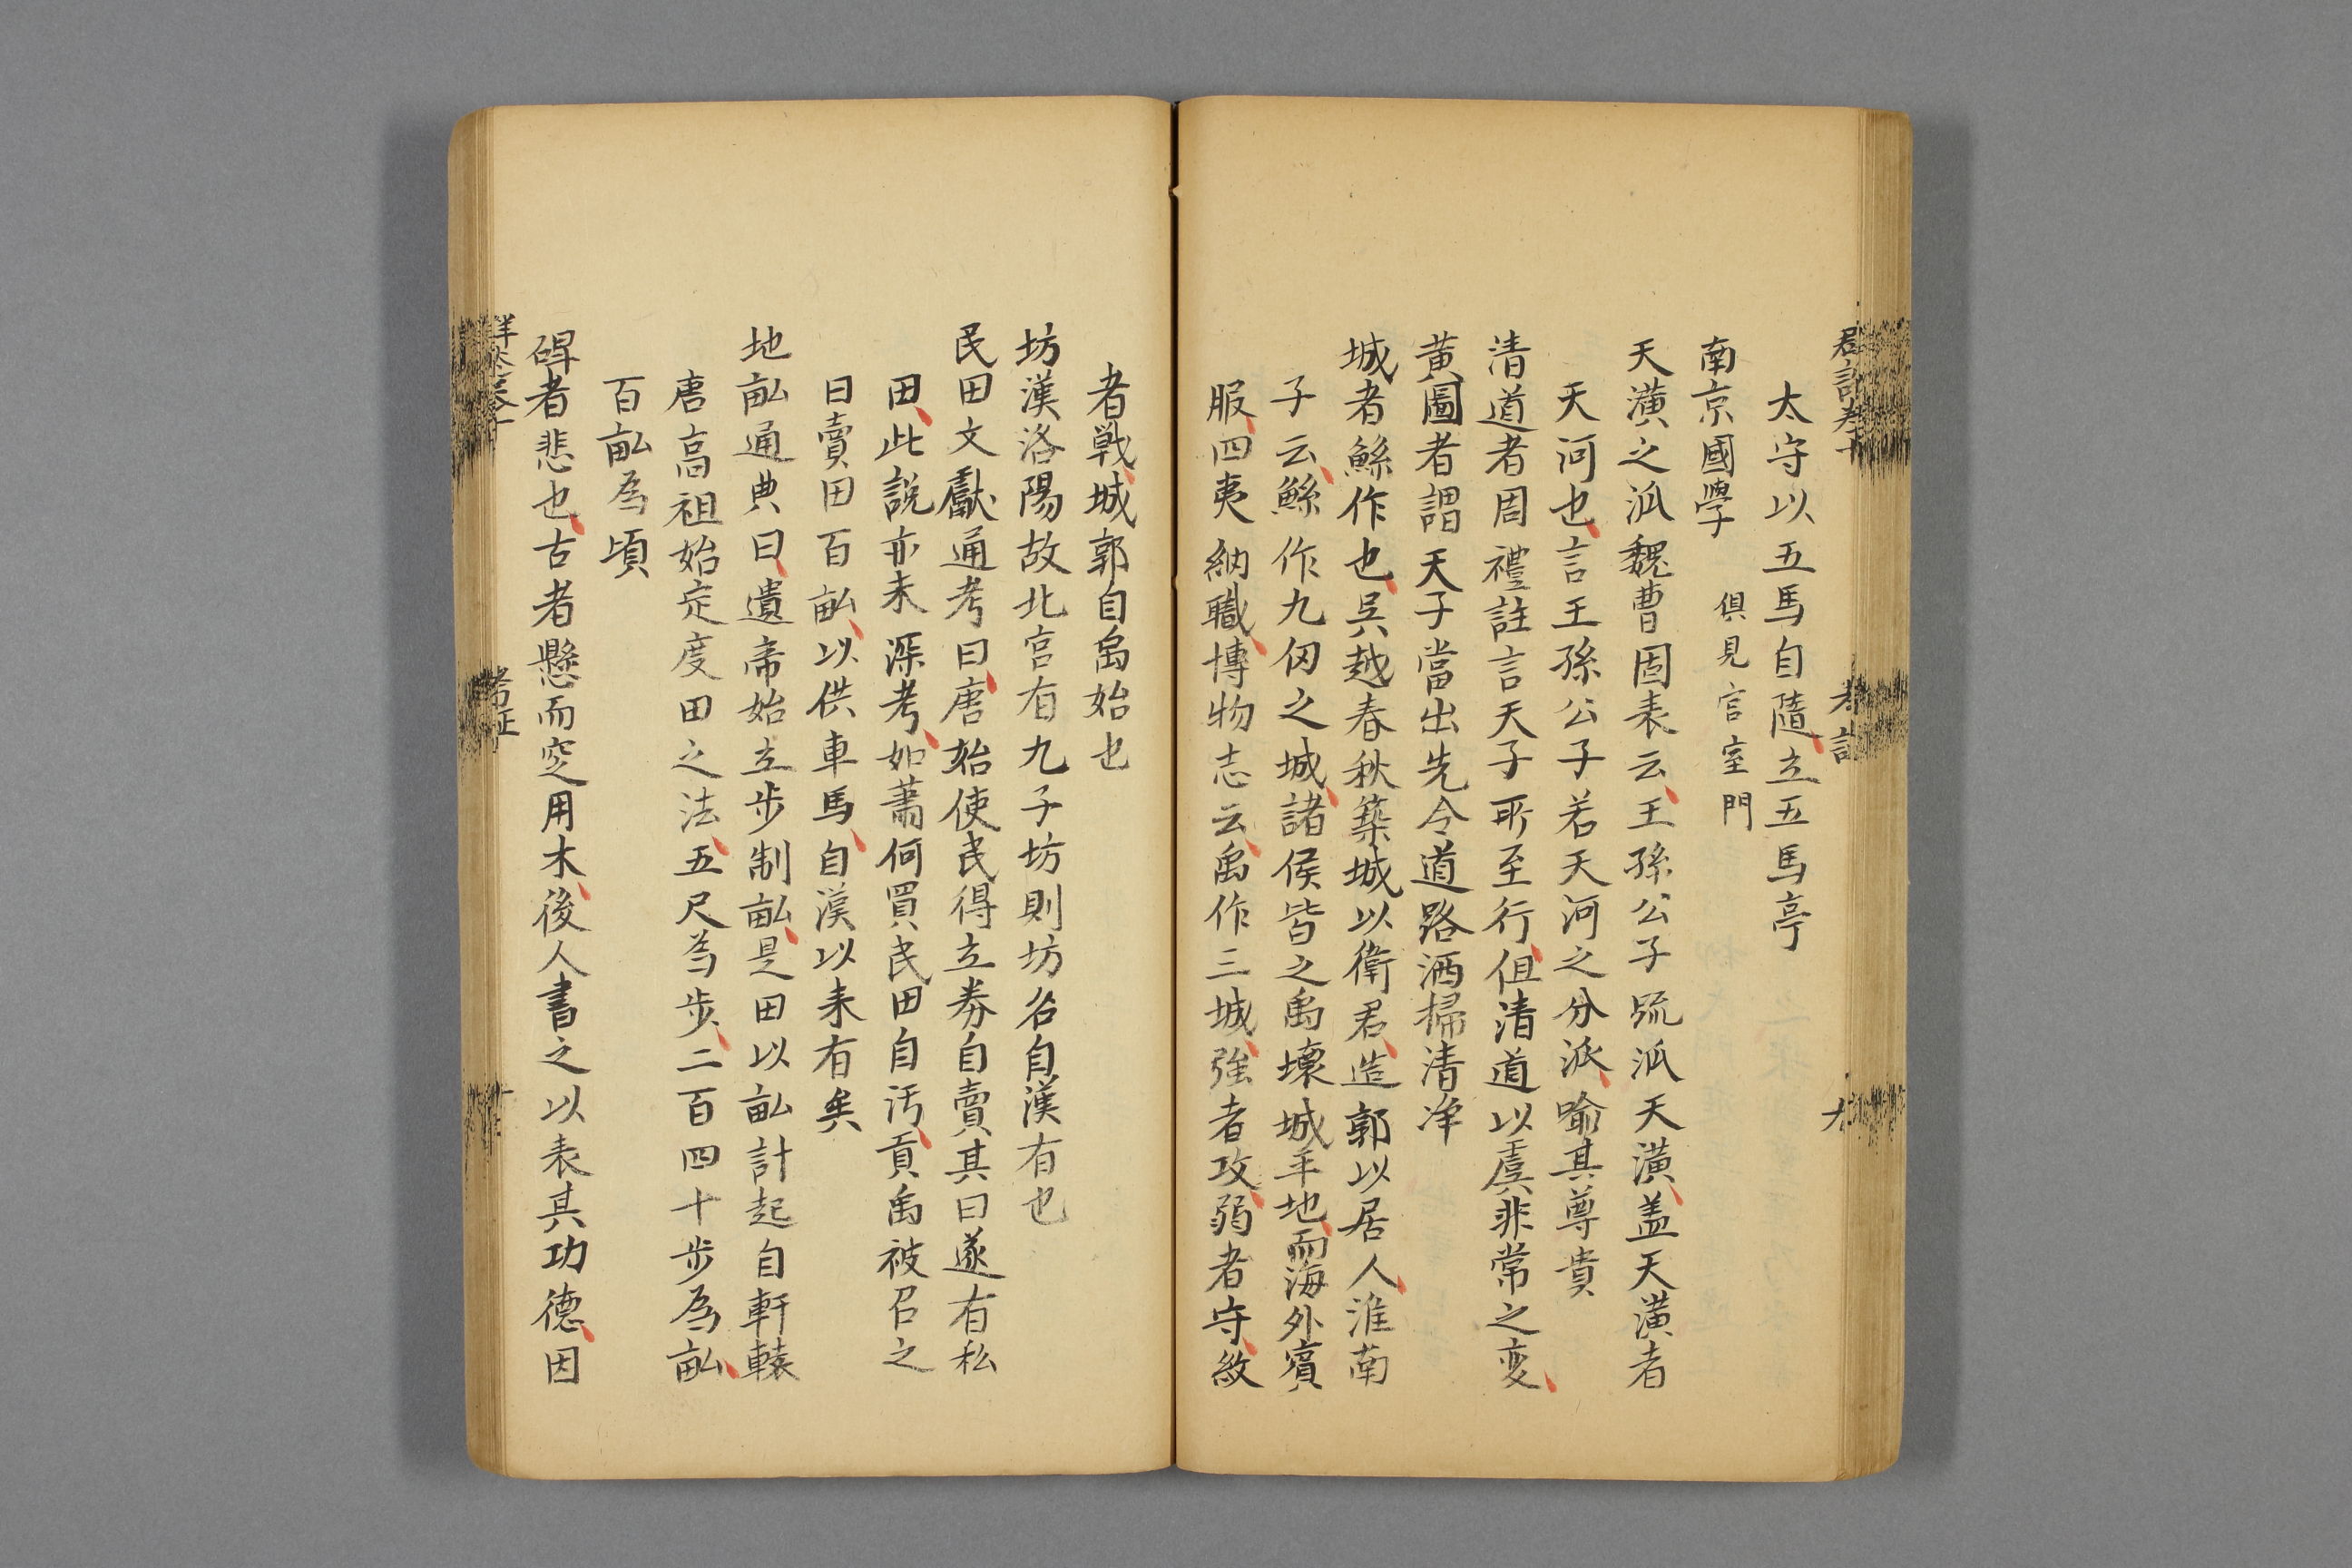 太守以五馬自隨立五馬亭
南京國學 俱見官室門
天潢之泒魏曹固表云王孫公子疏泒天潢盖天潢者
天河也言王孫公子若天河之分派喻其尊貴
清道者周禮註言天子所至行但清道以虞非常之变
黃圖者謂天子當出先令道路洒掃清净
城者鯀作也吳越春秋築城以衛君造郭以居人淮南
子云鯀作九仞之城諸侯皆之禹壞城平地而海外賓
服四夷納職博物志云禹作三城強者攻弱者守敵
者戰城郭自禹始也
坊漢洛陽故北宮有九子坊則坊名自漢有也
民田文獻通考曰唐始使民得立券自賣其田遂有私
田此說亦未深考如蕭何買民田自汚貢禹被召之
日賣田百畝以供車馬自漢以来有矣
地畝通典曰遺帝始立步制畝是田以畝計起自軒轅
唐高祖始定度田之法五尺為步二百四十步為畝
百畝為頃
碑者悲也古者懸而窆用木後人書之以表其功德因